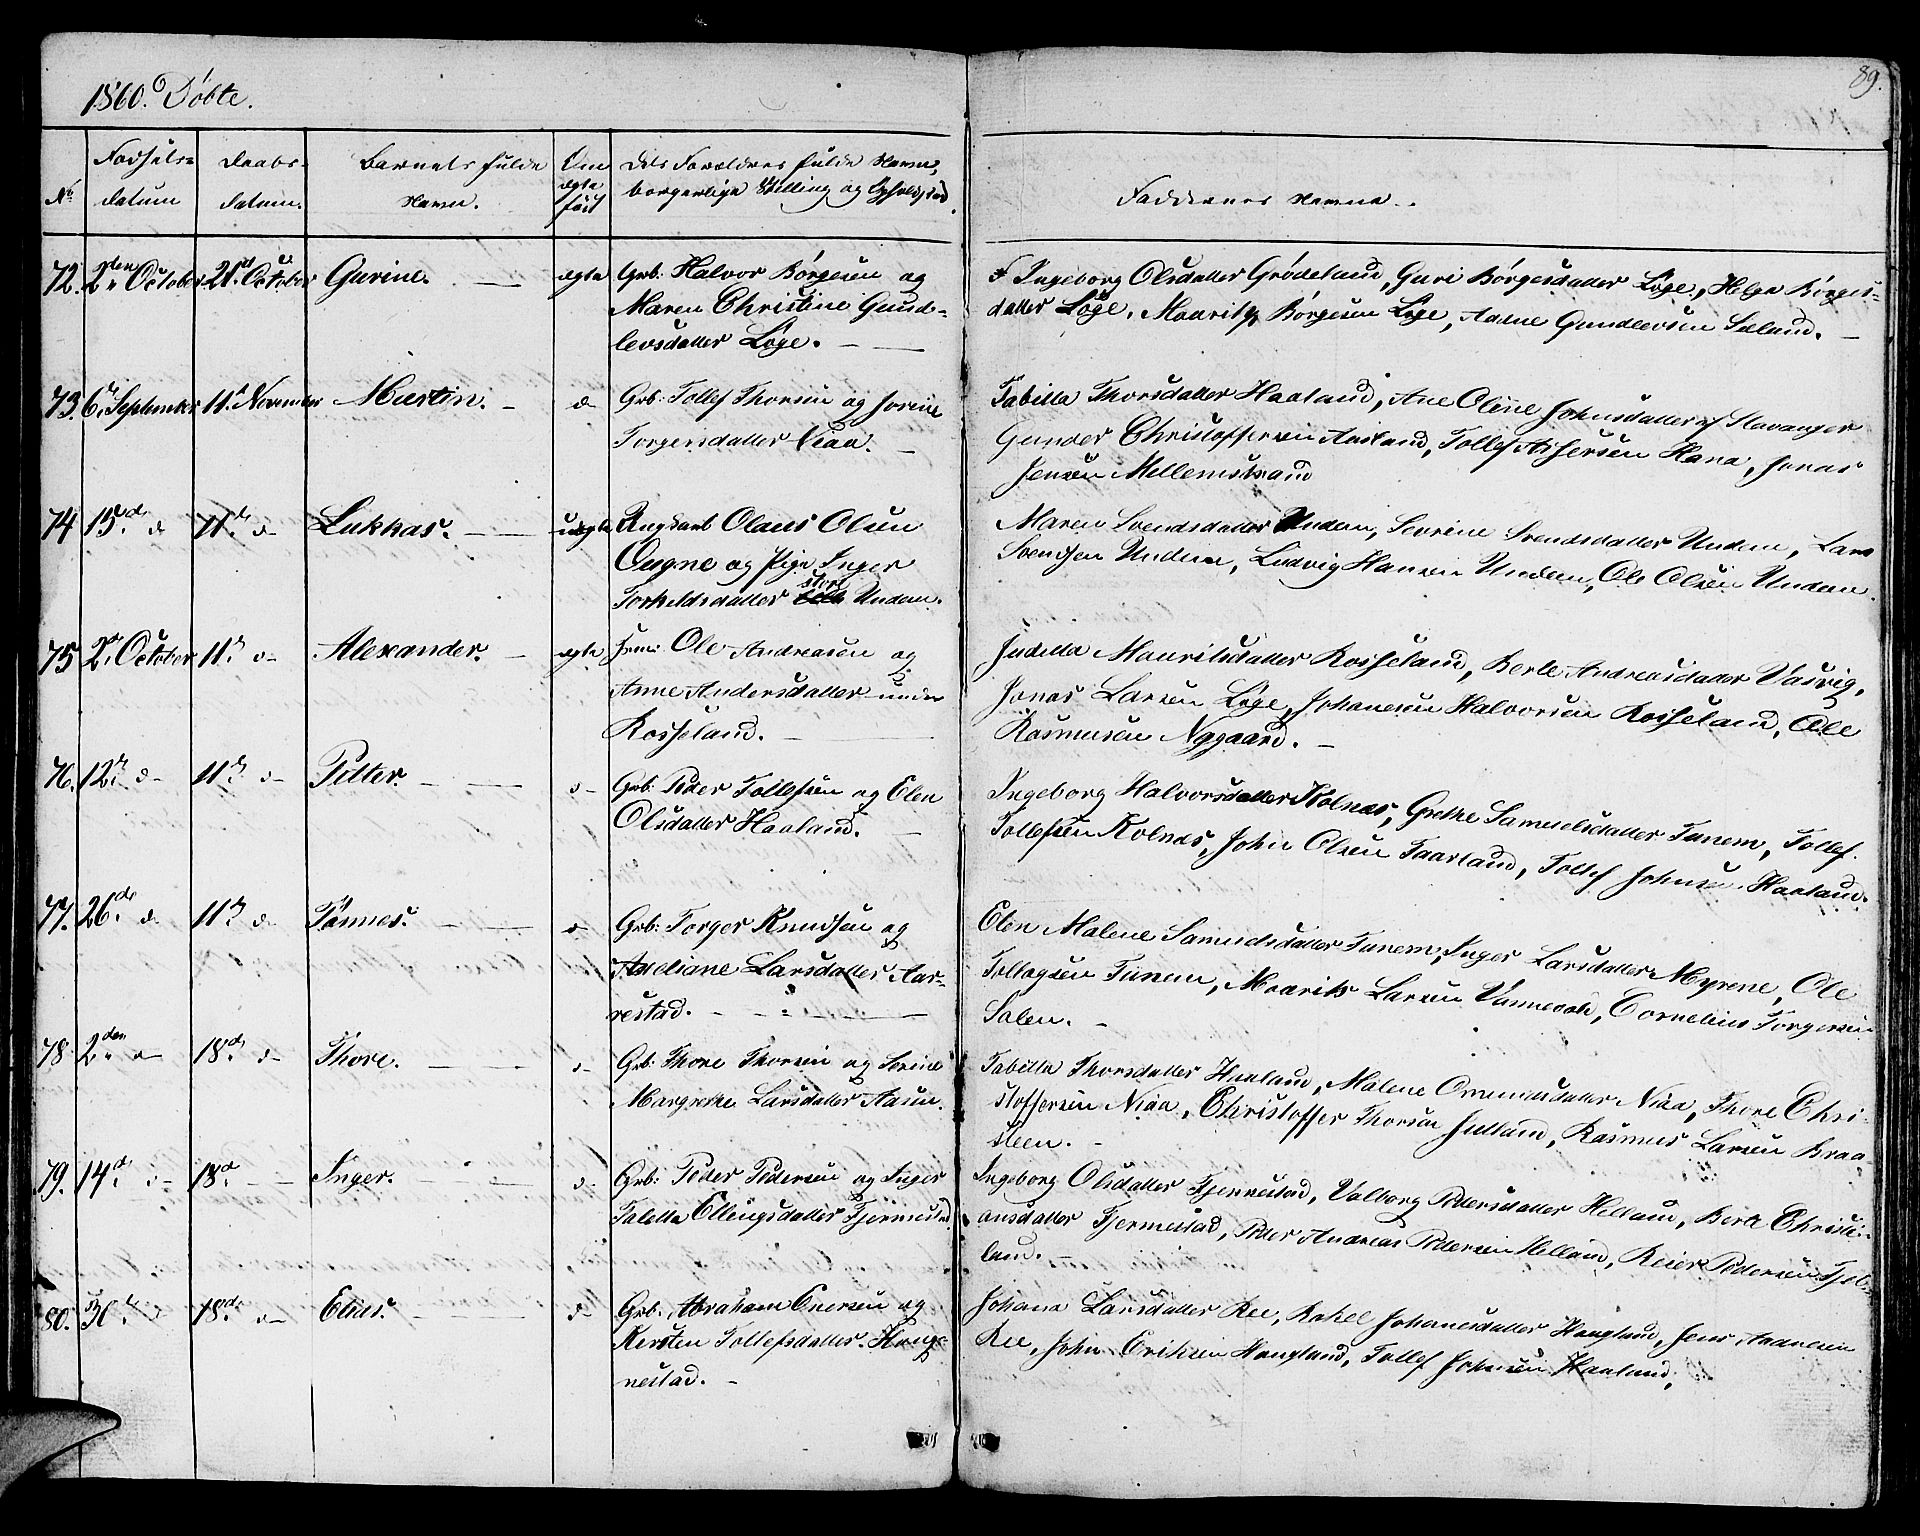 89.
1860. Døbte.
No
Fødsels-
datum
Daabs-
datum.
Barnets fulde
Navn.
Om
ægte
født
Dets Forældres fulde Navne,
borgerlige Stilling og Opholdssted.
Faddernes Navne.
72. 2den October 21de October Gurine. ægte Grb: Halvor Børgesen og
Maren Christine Gund-
levsdatter Løge.
Ingeborg Olsdatter Grødeland, Guri Børgesdatter Løge, Helga Børges-
datter Løge, Mauritz Børgesen Løge, Aadne Gundlevsen Sæland.
73. 6. September 11. November Martin. d Grb: Tollef Thorsen og Serine
Torgersdatter Niaa.
Tabitta Thorsdatter Haaland, Ane Oline Johnsdatter af Stavanger
Gunder Christoffersen Ausland, Tollef Asgersen Hana, Jonas
Jensen Mellemstrand
74 15. d 11. d Lukkas. uægte Ungkarl Olaus Olsen
Ougne og Pige Inger
Torkeldsdatter store Undem.
Maren Svendsdatter Undem, Sevrine Svendsdatter Undem, Lars
Svendsen Undem, Ludvig Hansen Undem, Ole Olsen Undem.
75 2. October 11. d Alexander. ægte Ole Andreasen og
Anne Andersdatter under
Rosseland.
Juditta Mauritsdatter Rosseland, Berte Andreasdatter Vasvig,
Jonas Larsen Løge, Johanesen Halvorsen Rosseland, Ole
Rasmusen Nygaard.
76. 12. d 11. d Pitter. d Grb: Peder Tollefsen og Elen
Olsdatter Haaland.
Ingeborg Halvorsdatter Kolnæs, Grethe Samuelsdatter Tunem, Tollef
Tollefsen Kolnæs, John Olsen Taarland, Tollef Johnsen Haaland.
77. 26. d 11. d Tønnes. d Grb: Torger Knudsen og
Aneliane Larsdatter Aar-
restad.
Elen Malene Samuelsdatter Tunem, Inger Larsdatter Myrene, Ole
Tollagsen Tunem, Maurits Larsen Vannevoll, Cornelius Torgersen
Salen.
78 2den d 18. d Thore. d Grb: Thore Thorsen og Serine
Margrethe Larsdatter Aasen.
Tabitta Thorsdatter Haaland, Malene Ommundsdatter Niaa, Thore Chri-
stoffersen Niaa, Christoffer Thorsen Jutland, Rasmus Larsen Braa-
steen.
79. 14. d 18. Inger. d Grb: Peder Pedersen og Inger
Taletta Ellingsdatter Fjermestad.
Ingeborg Olsdatter Fjermestad, Valborg Pedersdatter Helland, Berte Christi-
ansdatter Fjermestad, Peder Andreas Pedersen Helland, Reier Pedersen Tjel-
land.
80. 30. d 18. d Elias. d Grb. Abraham Enersen og
Kirsten Tollefsdatter Houge-
nestad.
Johana Larsdatter Ree, Rakel Johanesdatter Haugland, Jens Aanensen
Ree, John Eriksen Haugland, Tollef Johnsen Haaland,